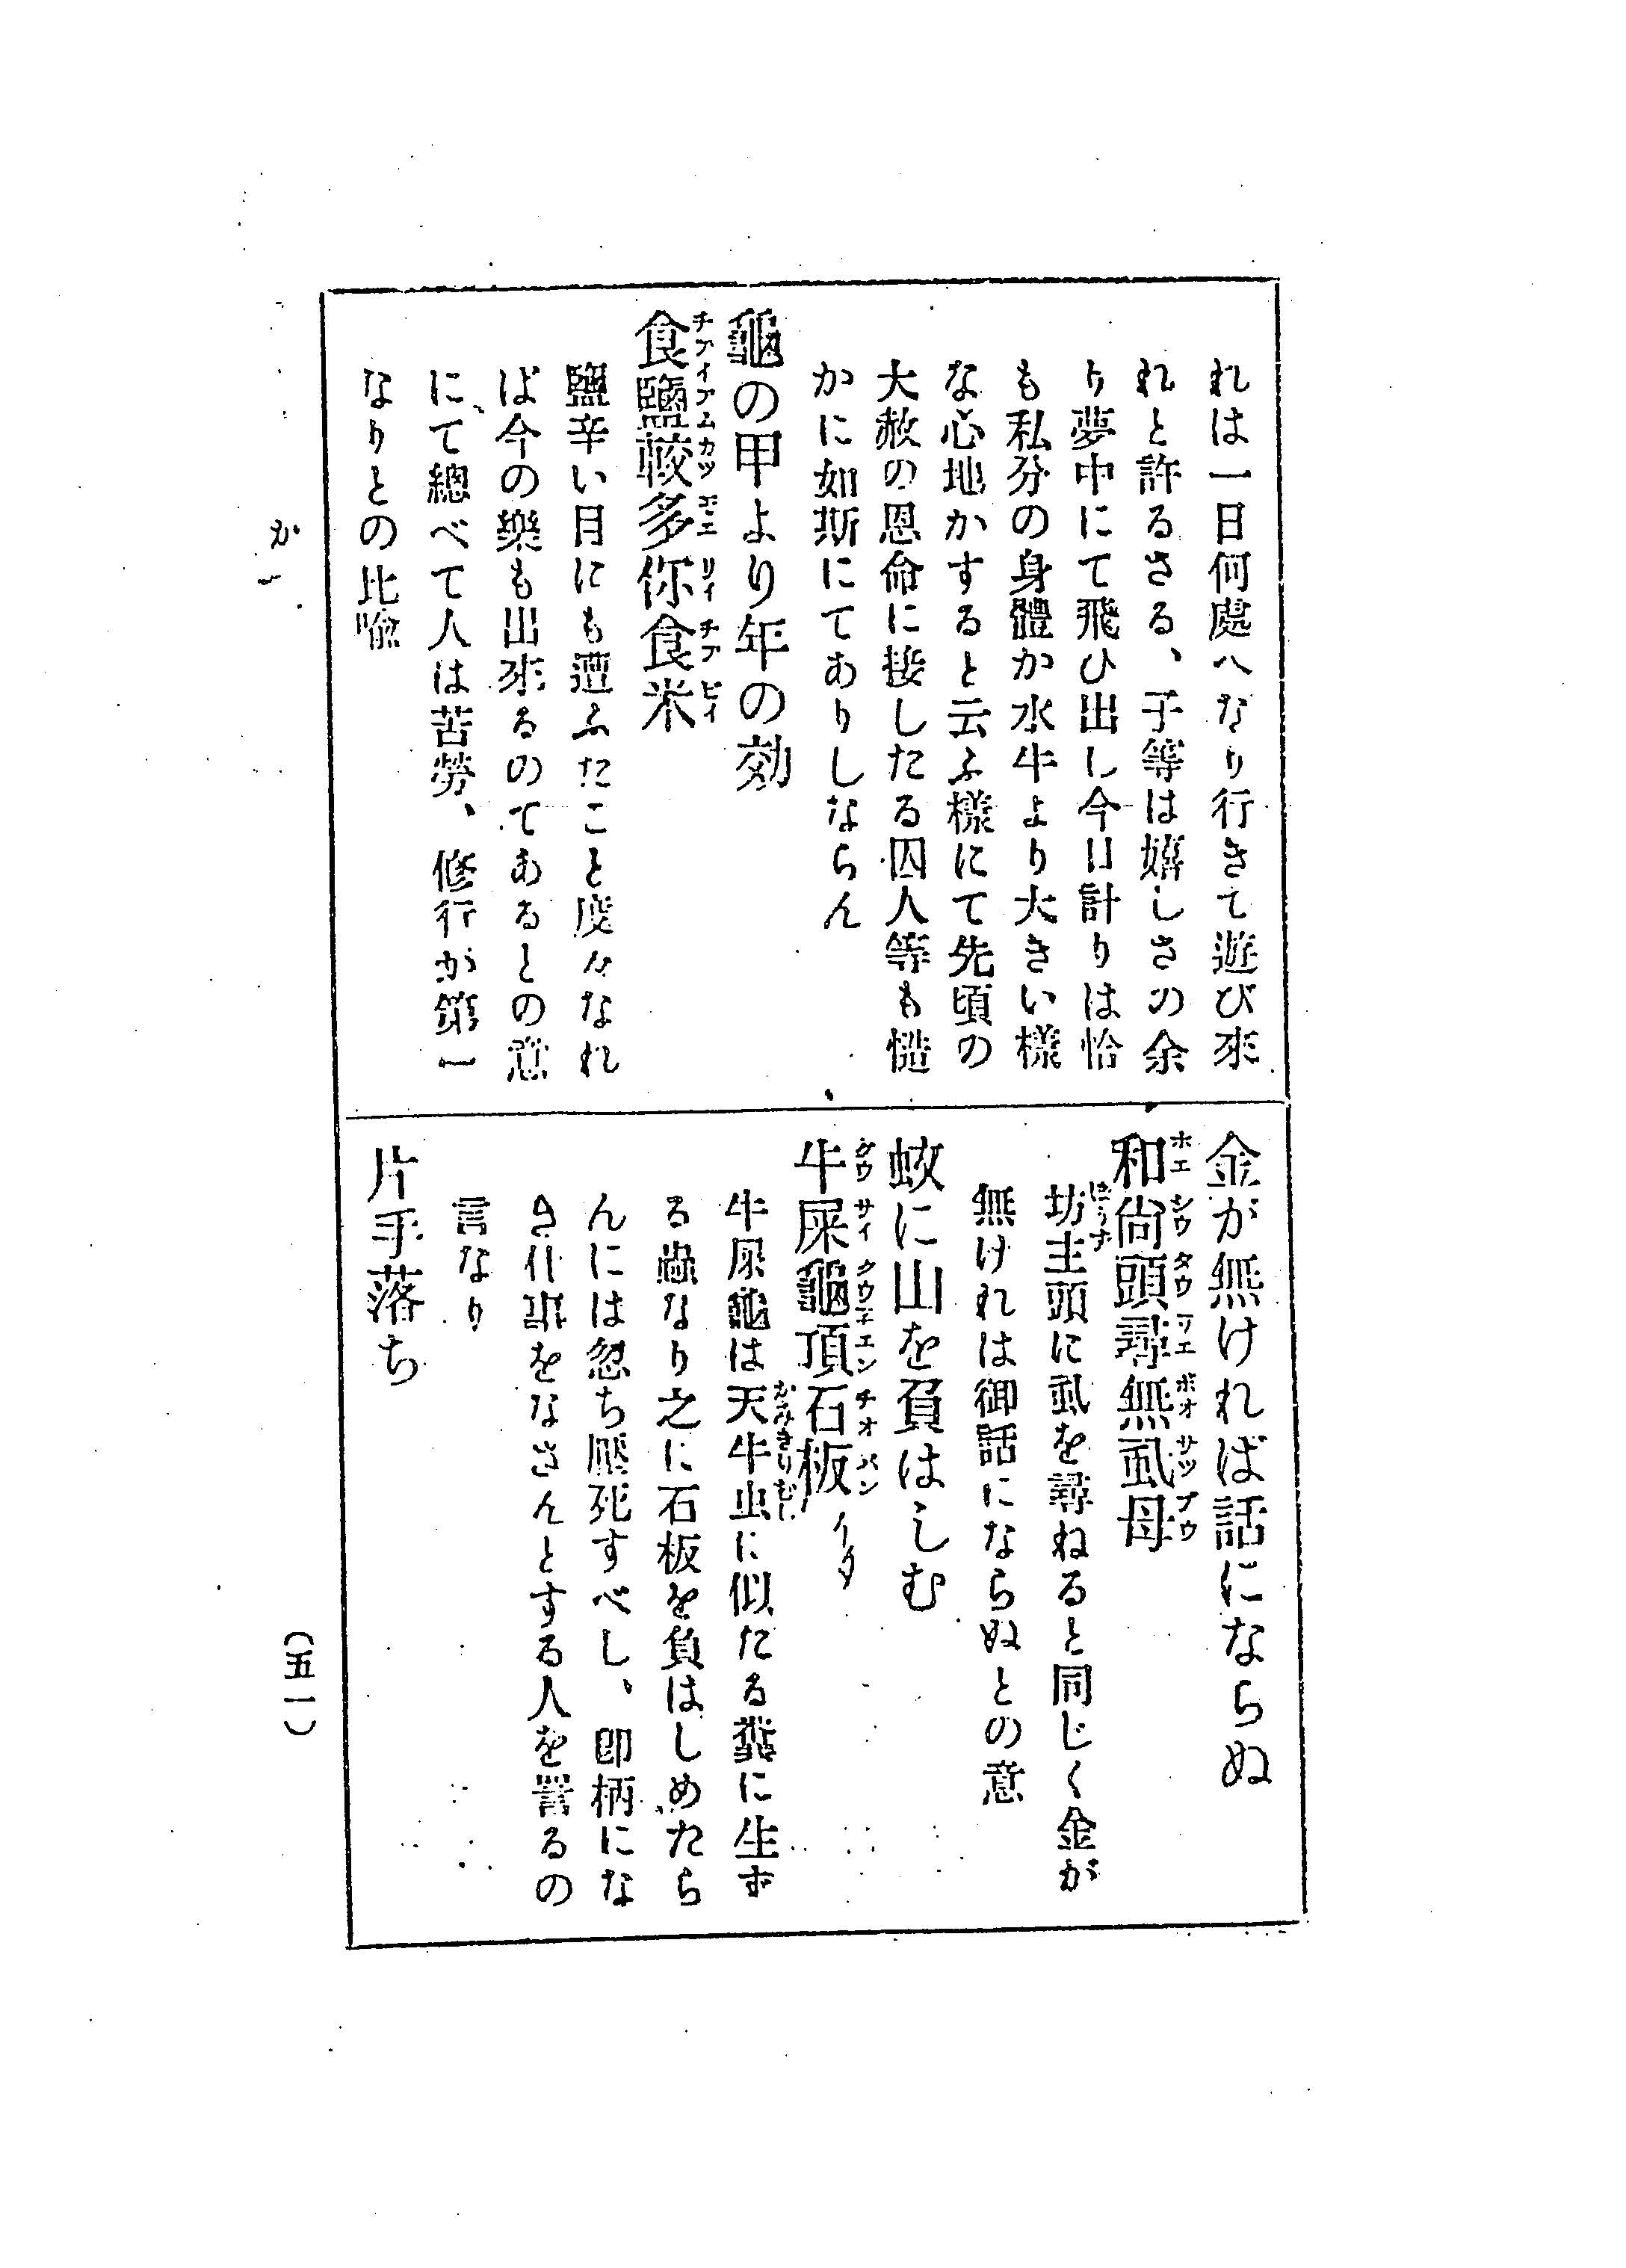 れは一日何處へなり行きて遊び來
れと許るさる、子等は嬉しさの余
り夢中にて飛ひ出し今日計りは恰
も私分の身體か水牛より大きい樣
な心地かすると云ふ樣にて先頃の
大赦の恩命に接したる囚人等も慥
かに如斯にてありしならん
龜の甲より年の効
食鹽較多你食米
チアイアムカツ リイチアビイ
鹽辛い目にも遭ふたこと度々なれ
ば今の樂も出來るのてあるとの意
にて總べて人は苦勞、修行が第一
なりとの比喩
金が無ければ話にならぬ
和尚頭尋無虱母
ホエシウタウ ボオサツブウ
坊主頭に虱を尋ねると同じく金が
無けれは御話にならぬとの意
蚊に山を負はしむ
牛屎龜頂石板
グウサイクウ チオパン
牛屎龜は天牛虫に似たる糞に生ず
かみきりむし
る蟲なり之に石板を負はしめたら
んには忽ち壓死すべし、即柄にな
き仕事をなさんとする人を詈るの
言なり
片手落ち
か
(五一)